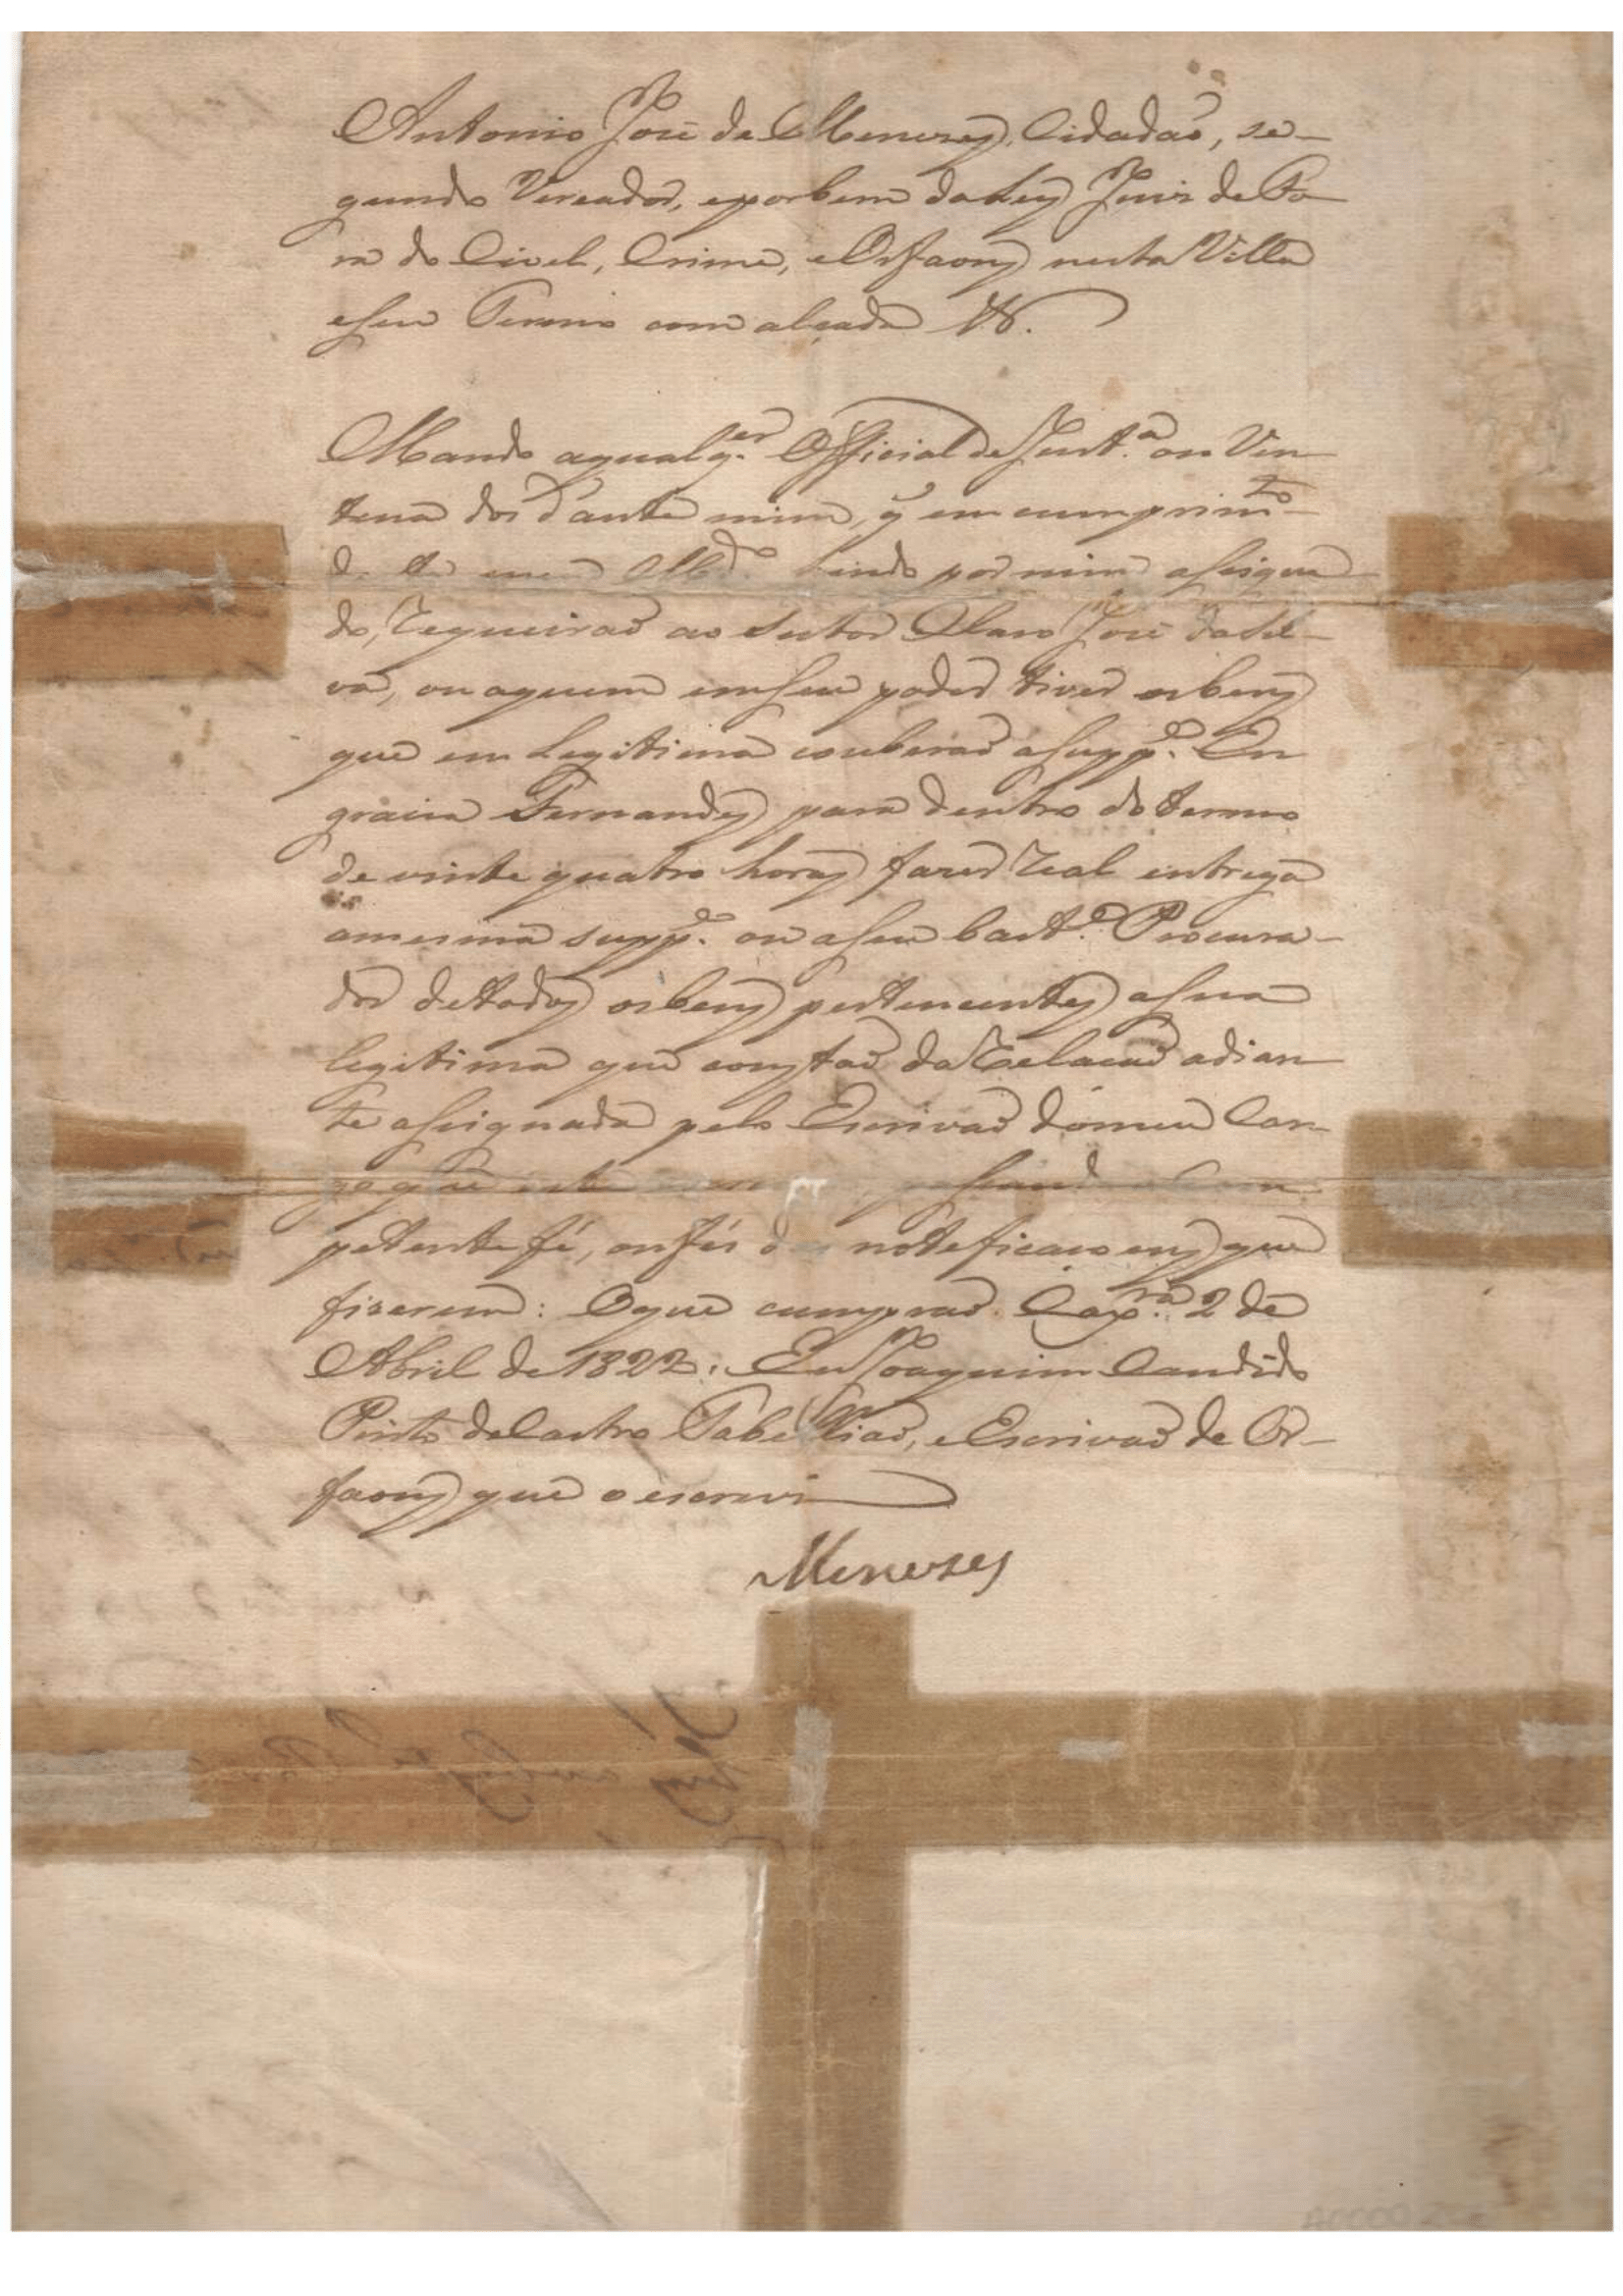 Antonio José de Menezes, Cidadaõ, se-
gundo Vereador, eporbem da Ley Juiz de Fo-
ra do Civel, Crime, e Orfaons nesta Villa
eseu Termo com alçada &.
Mando aqualq.er Official de Just.a ou Vin-
tena dos d'ante mim, q̃ em cumprim.to
de meu M.do sendo por mim assigna
do, requeiraõ ao tutor Claro José daSil-
va, ou aquem emseu poder tiver osbens
que em Legitima couberaõ aSupp.e En
gracia Fernandes para dentro do termo
de vinte quatro horas fazer real entrega
amesma supp.e ou aseu bast.e Procura-
dor detodos osbens pertencentes asua
legitima que constaõ da relacaõ adian-
te assignada pelo Escrivaõ domeu Car-
go que este passando a Com
petente fé, oufés das noteficacoens que
fizerem: Oque cumpraõ. Cax.ra 2 de
Abril de 1822. Eu Joaquim Candido
Pinto deCastro Tabelliaõ, eEscrivaõ de Or-
faons que o escrevi
Menezes